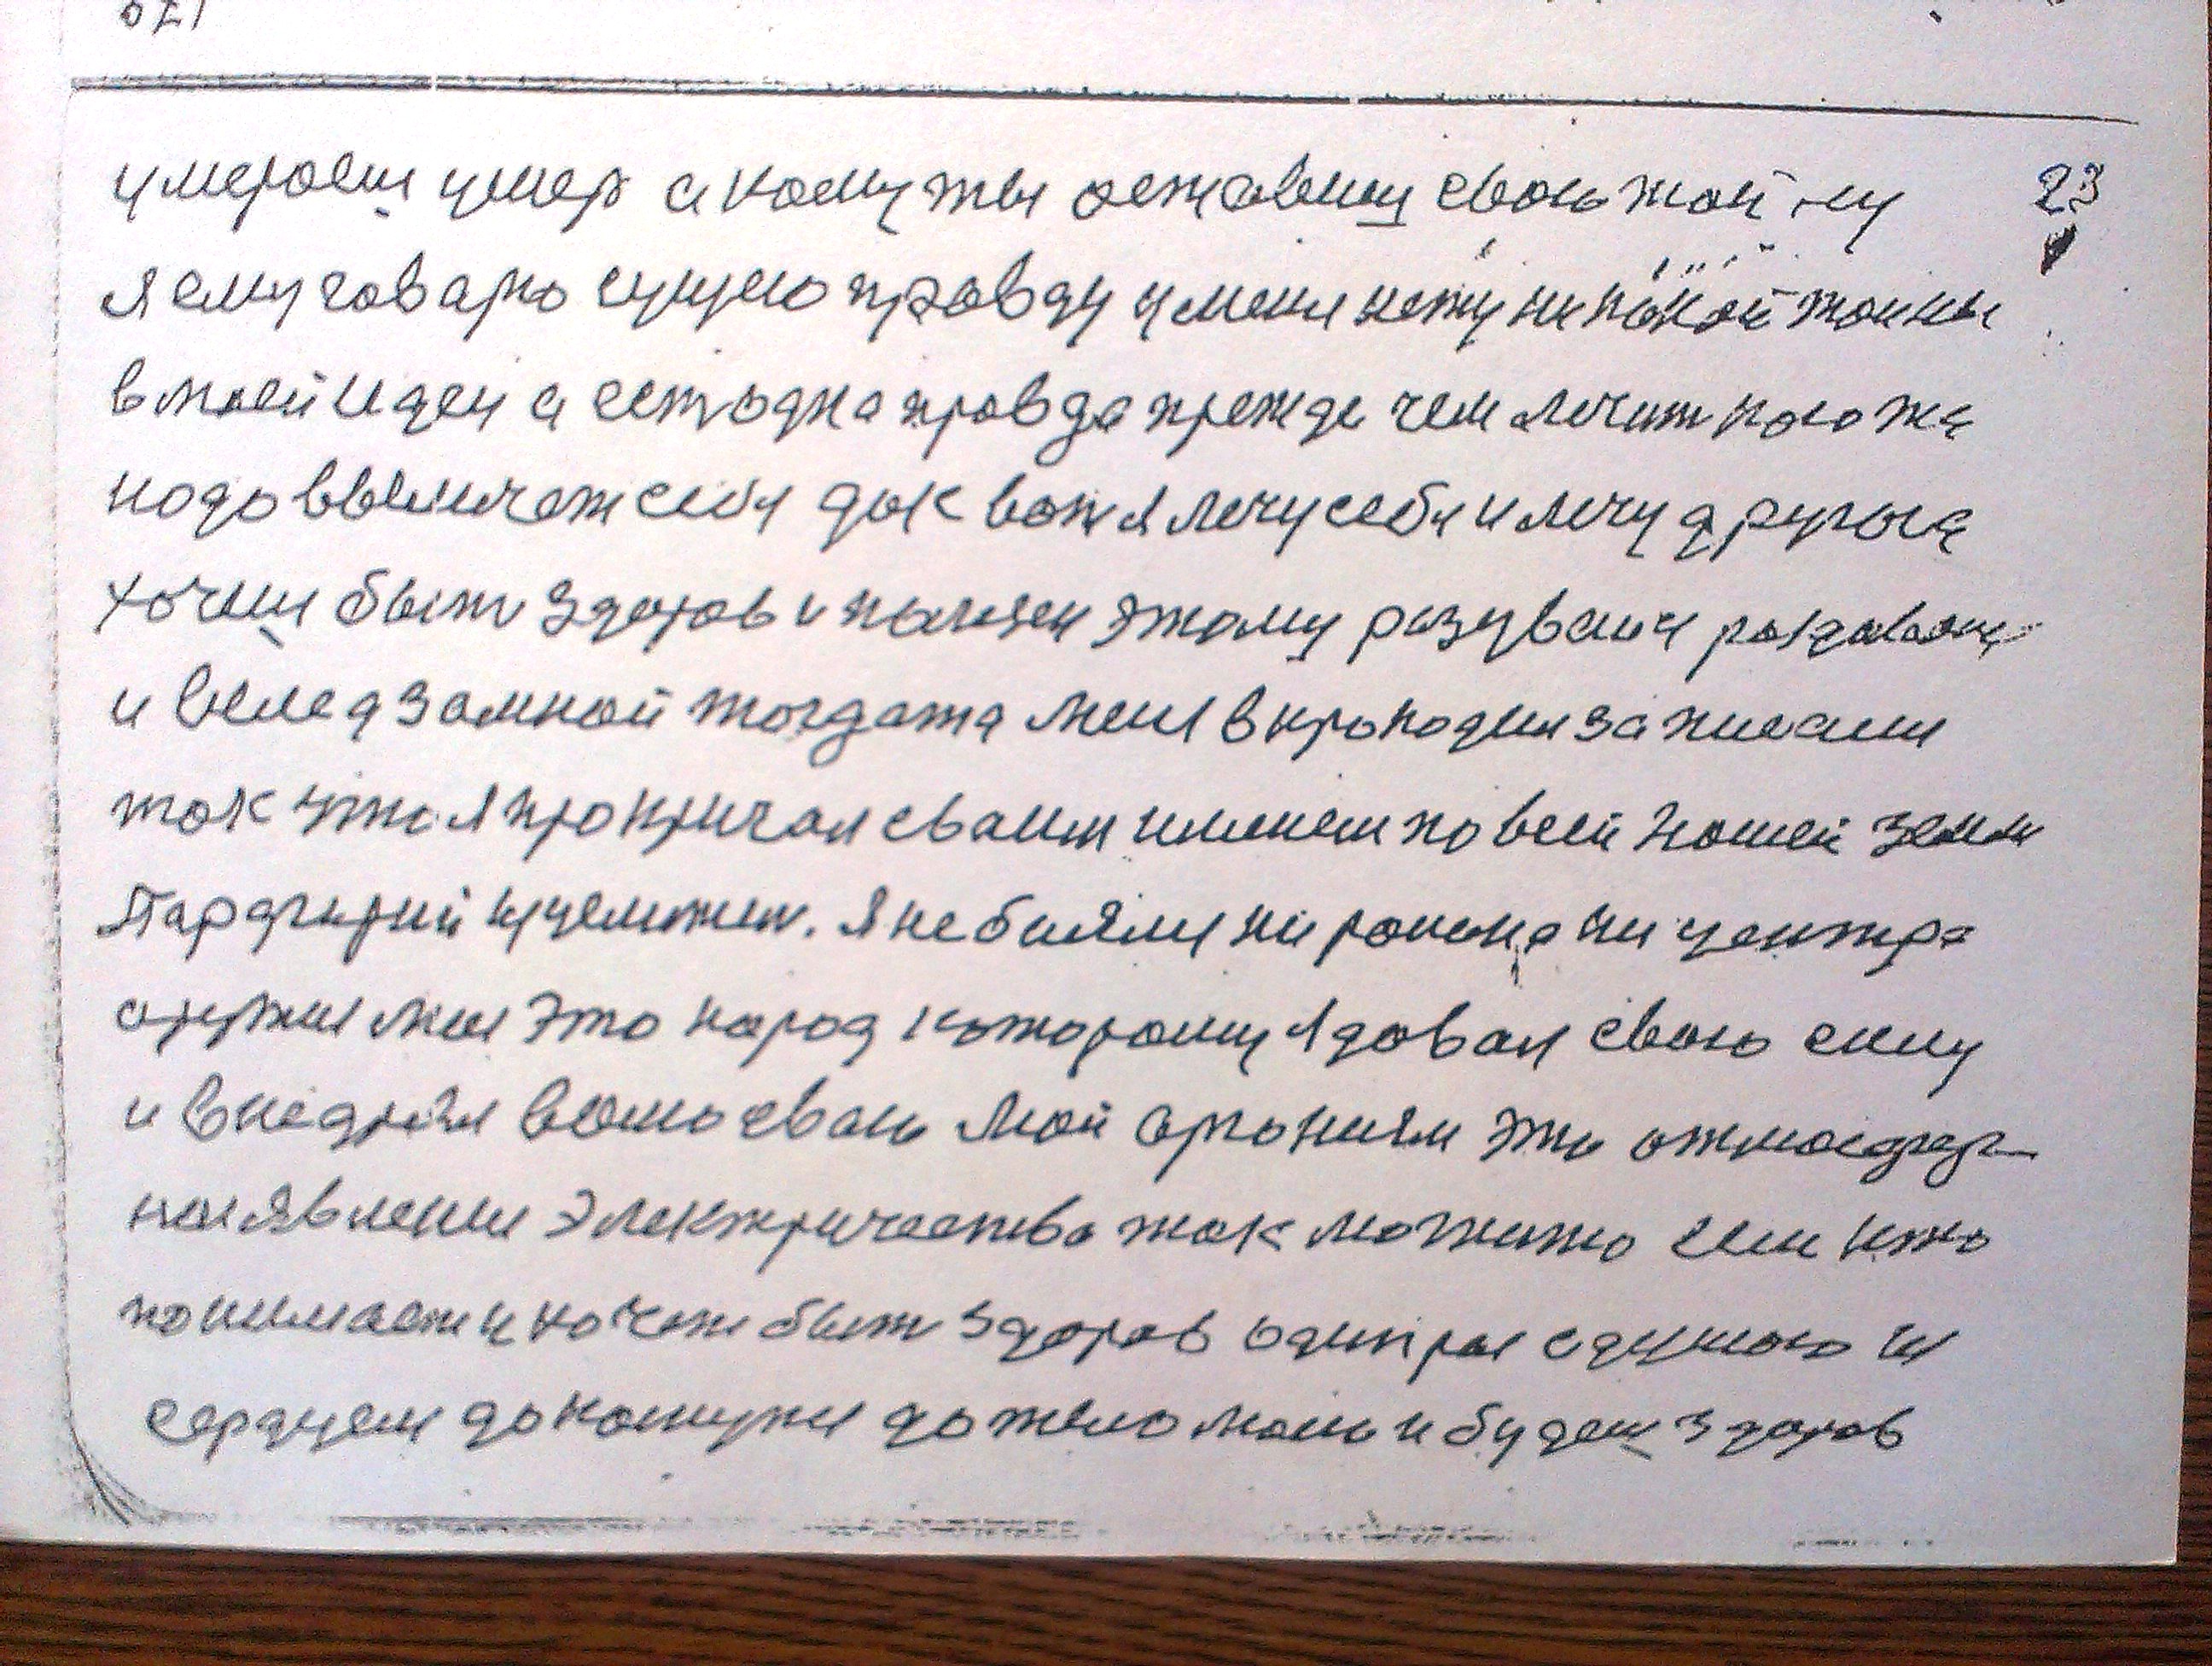 23
умероеш умер а кому ты оставиш свою тайну
я ему говарю сущую правду у меня нету никакой тайны
в моей идеи а есть одна правда прежде чем лечит кого же
надо вылечет себя дак вот я лечу себя и лечу другога
хочеш быт здоров и поэтому разувайся раздавайся
и вслед за мной тогда меня в крокодил записали
так што я прокричал сваим именем по всей нашей земли
Парфирий я не баялся ни раиена ни центра
аружия мая это народ которому я довал свою силу
и внедрял волю сваю мой аргонизм это отмосфер
ная явления электричества так можите если кто
понимает и хочет быт здоров адкрой с душою и
сердцем дакоснужи до тело маего и будеш здоров